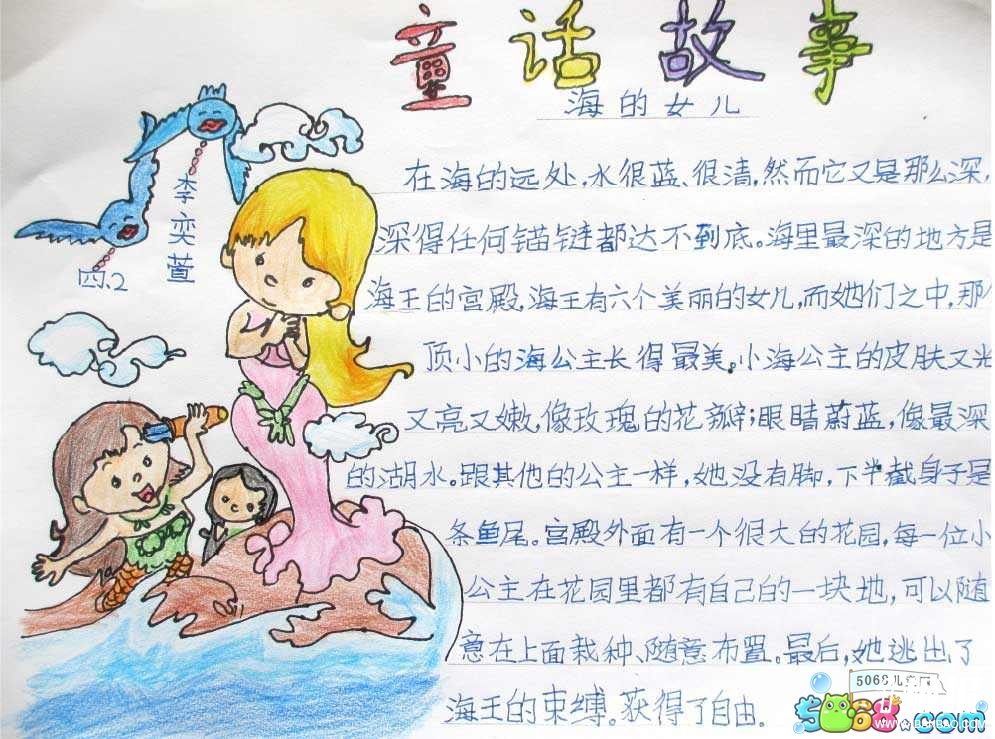 童话故事
海的女儿
李奕萱
四.2
在海的远处,水很蓝、很清,然而它又是那么深,
深得任何锚链都达不到底。海里最深的地方是
海王的宫殿,海王有六个美丽的女儿,而她们之中,那个
顶小的海公主长得最美。小海公主的皮肤又光
又亮又嫩,像玫瑰的花瓣;眼睛蔚蓝,像最深
的湖水。跟其他的公主一样,她没有脚,下半截身子是
条鱼尾。宫殿外面有一个很大的花园,每一位小
公主在花园里都有自己的一块地,可以随
意在上面栽种、随意布置。最后,她逃出了
海王的束缚。获得了自由.
5068儿童网
5068.com